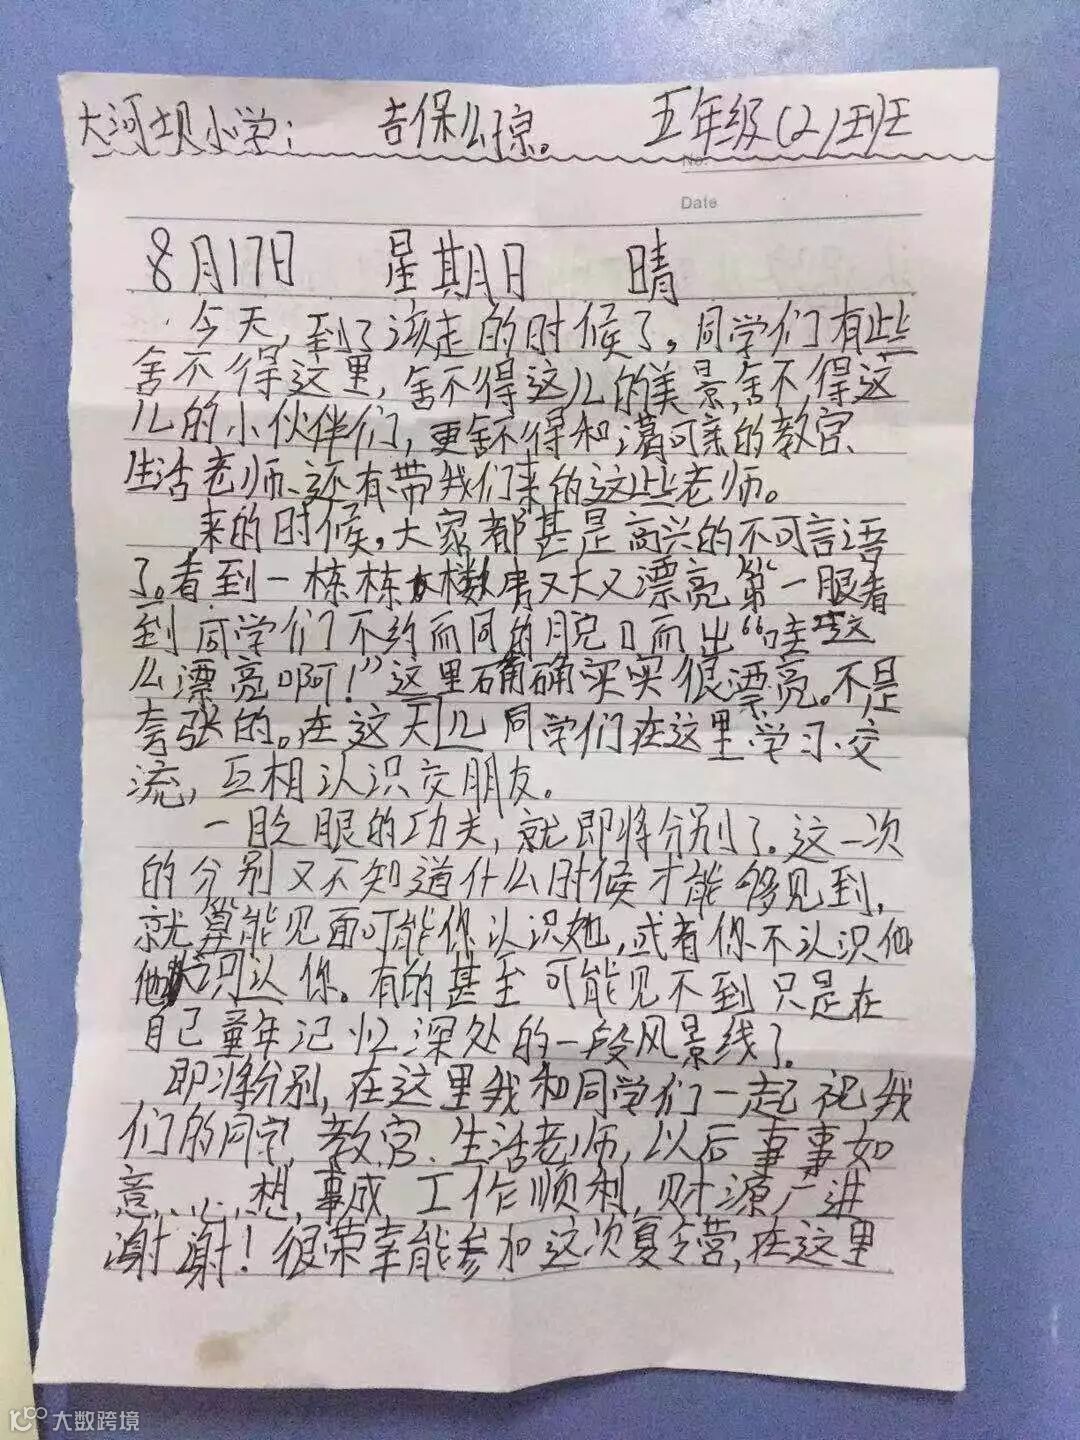 大河坝小学： 吉保么琼。 五年级(2)班
No.
Date
8月17日 星期日 晴
今天，到了该走的时候了，同学们有些
舍不得这里，舍不得这儿的美景，舍不得这
儿的小伙伴们，更舍不得和蔼可亲的教官、
生活老师、还有带我们来的这些老师。
来的时候，大家都甚是高兴的不可言语
了。看到一栋栋楼房又大又漂亮第一眼看
到同学们不约而同的脱口而出“哇这
么漂亮啊！”这里确确实实很漂亮。不是
夸张的。在这天儿同学们在这里学习、交
流，互相认识交朋友。
一眨眼的功夫，就即将分别了。这一次
的分别又不知道什么时候才能够见到，
就算能见面可能你认识她，或者你不认识他
他识认你。有的甚至可能见不到只是在
自己童年记忆深处的一段风景线了。
即将分别，在这里我和同学们一起祝我
们的同学，教官、生活老师，以后事事如
意，心想，事成，工作顺利，财源广进
谢谢！很荣幸能参加这次夏令营，在这里
大数跨境